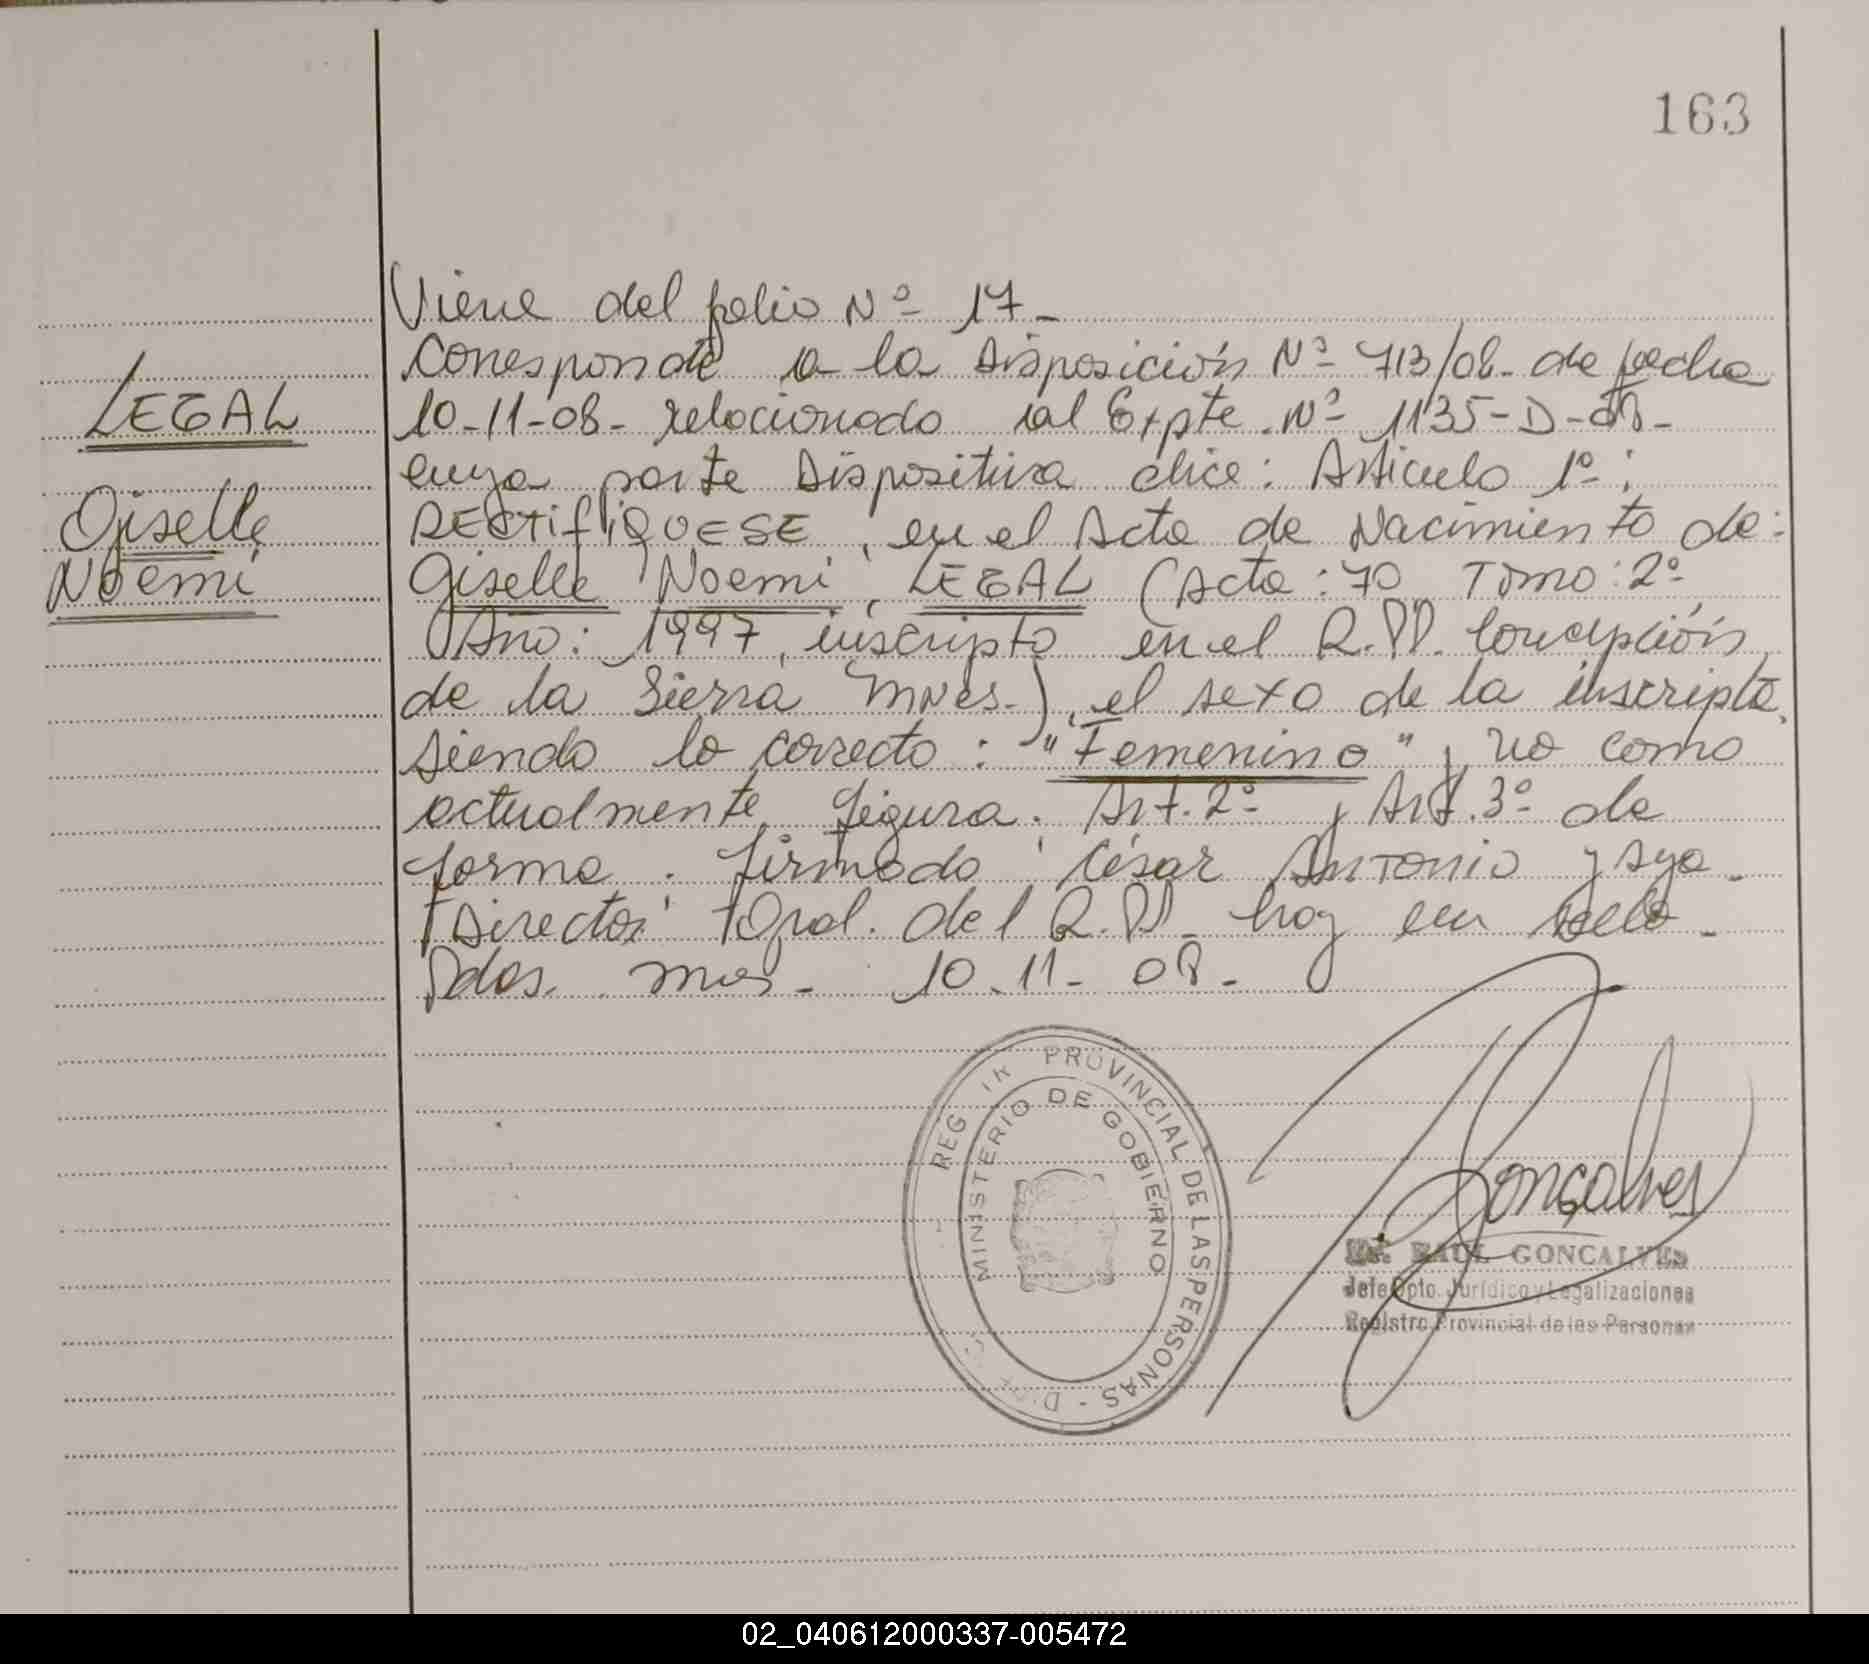 163
Viene del folio Nº 17_
Corresponde a la Disposición Nº 713/08_ de fecha
LEGAL
10-11-08_ relacionado al Expte. Nº 1135-D-08_
cuya parte Dispositiva dice: Articulo 1º:
Giselle
RECTIFIQUESE, en el Acta de Nacimiento de:
Noemi
Giselle Noemi, LEGAL (Acta: 70, Tomo: 2º
Año: 1997, inscripta en el R.PP. Concepción
de la Sierra Mnes.), el sexo de la inscripta,
siendo lo correcto: "Femenino" y no como
actualmente figura. Art. 2º y Art. 3º de
forma. firmado César Antonio
Director Gral. del R.PP_ hoy en sello_
Pdas. mnes_ 10_11_08_
REG PROVINCIAL DE LAS PERSONAS
MINISTERIO DE GOBIERNO
Goncalves
Dr. RAUL GONCALVES
Jefe Dpto. Jurídico y Legalizaciones
Registro Provincial de las Personas
02_040612000337-005472